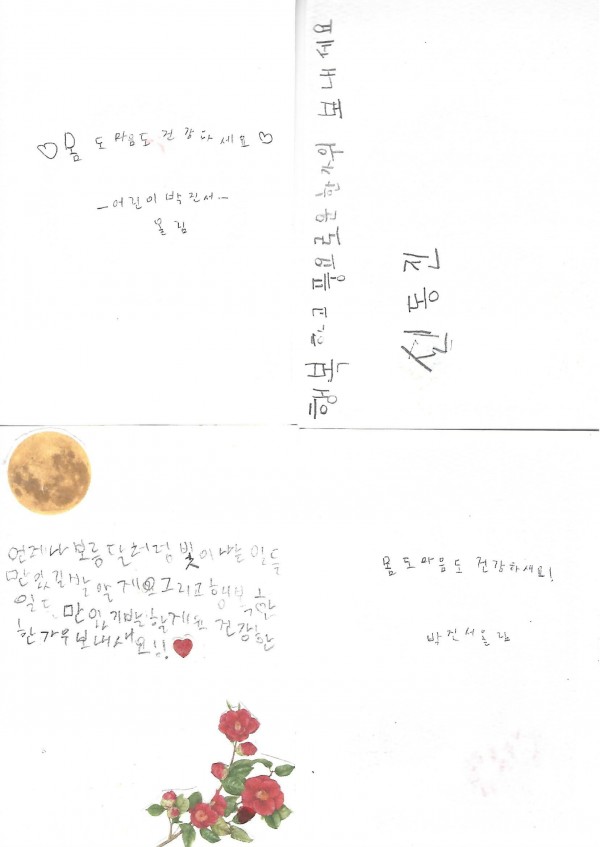 ♡몸도 마음도 건강하세요♡
-어린이 박진서-
올림
행복하고 풍요로운 한가위 보내세요
신동진
언제나 보름달처럼 빛이 나는 일들
만 있길 바랄게요 그리고 행복한
일도 만 있기 바랄게요 건강한
한가위 보내새
요!! ♥
몸도 마음도 건강하세요!
박진서 올림